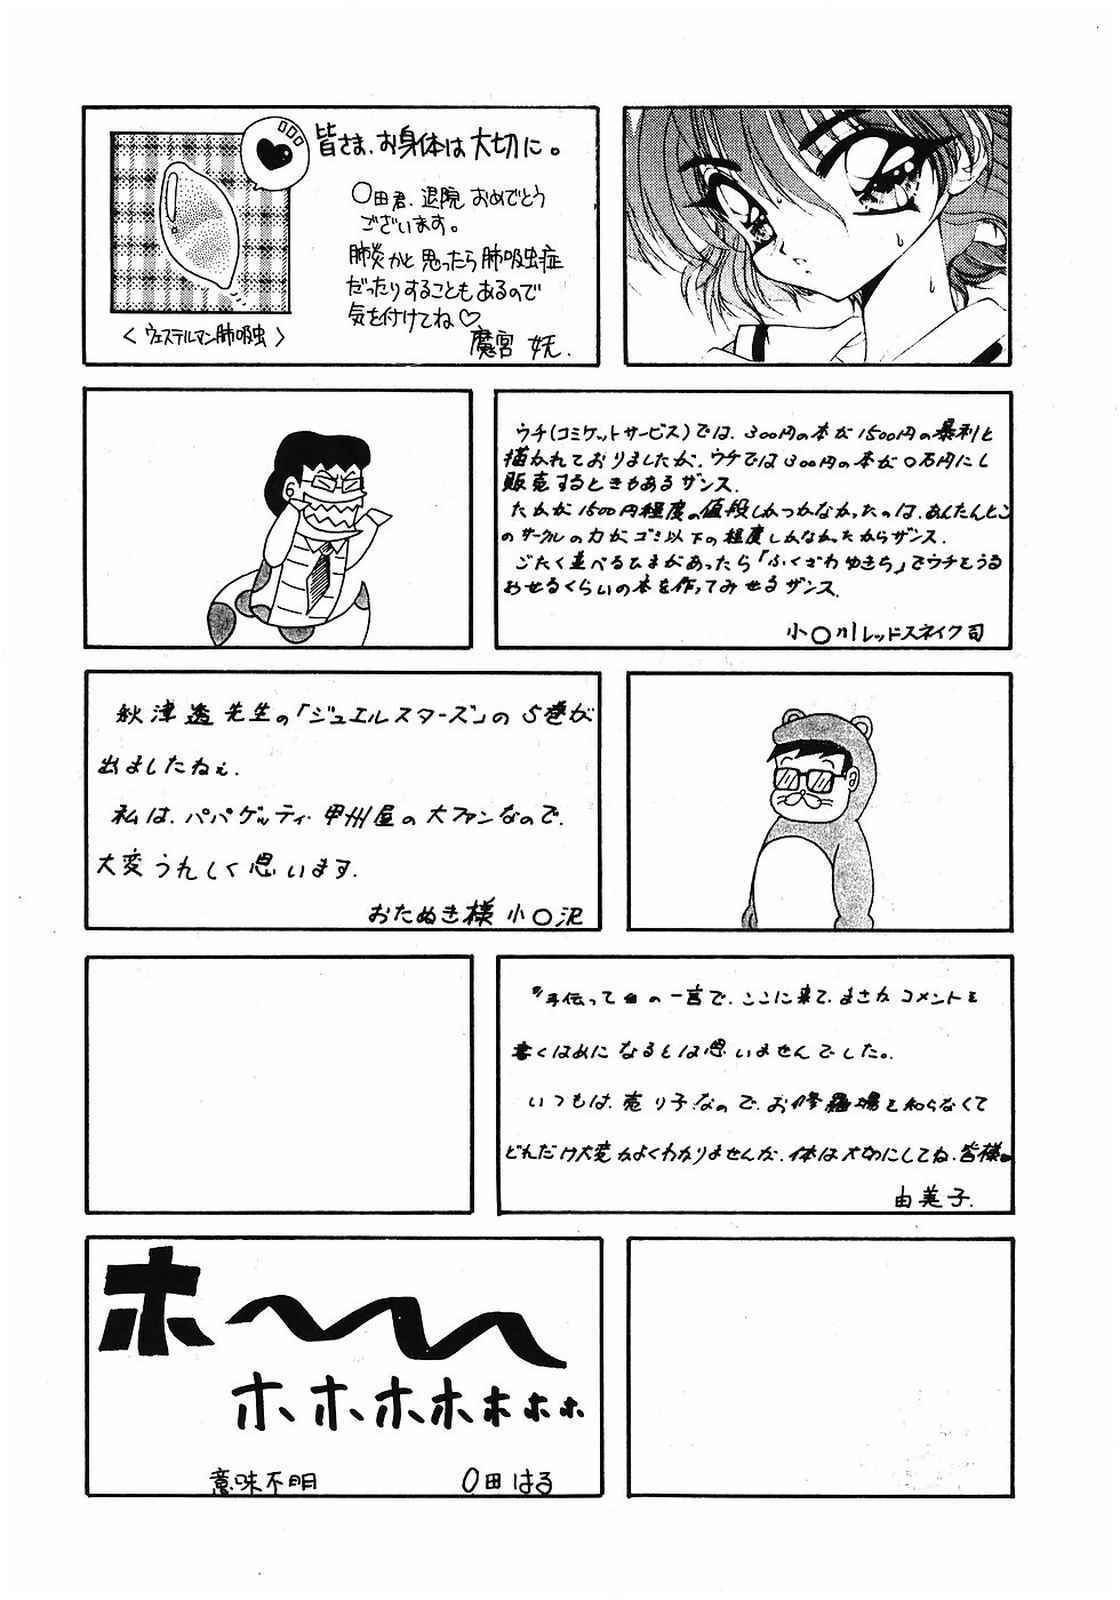 皆さま、お身体は大切に。
〇田君、退院おめでとう
ございます。
肺炎かと思ったら肺吸虫症
だったりすることもあるので
気を付けてね♡
魔宮 妖.
< ウェステルマン肺吸虫 >
ウチ(コミケットサービス)では、300円の本が1500円の暴利と
描かれておりましたが、ウチでは300円の本が〇万円にし
販売するときもあるザンス.
たかが1500円程度の値段しかつかなかったのは、あんたんとこ
のサークルの力がゴミ以下の程度しかなかったからザンス.
ごたく並べるひまがあったら「ふくざわゆきち」でウチもうる
おせるくらいの本を作ってみせるザンス.
小〇川レッドスネイク司
秋津透先生の「ジュエルスターズ」の5巻が
出ましたねぇ.
私は、パパゲッティ・甲州屋の大ファンなので、
大変うれしく思います.
おたぬき様 小〇沢
手伝って の一言で、ここに来て、まさか コメントを
書くはめに なるとは思いませんでした。
いつもは、売り子なので、お修羅場を知らなくて
どれだけ大変かよくわかりませんが、体は大切にしてね、皆様。
由美子.
ホ〜〜
ホ、ホ、ホ、ホ、ホ、ホ、ホ、
意味不明 〇田はる